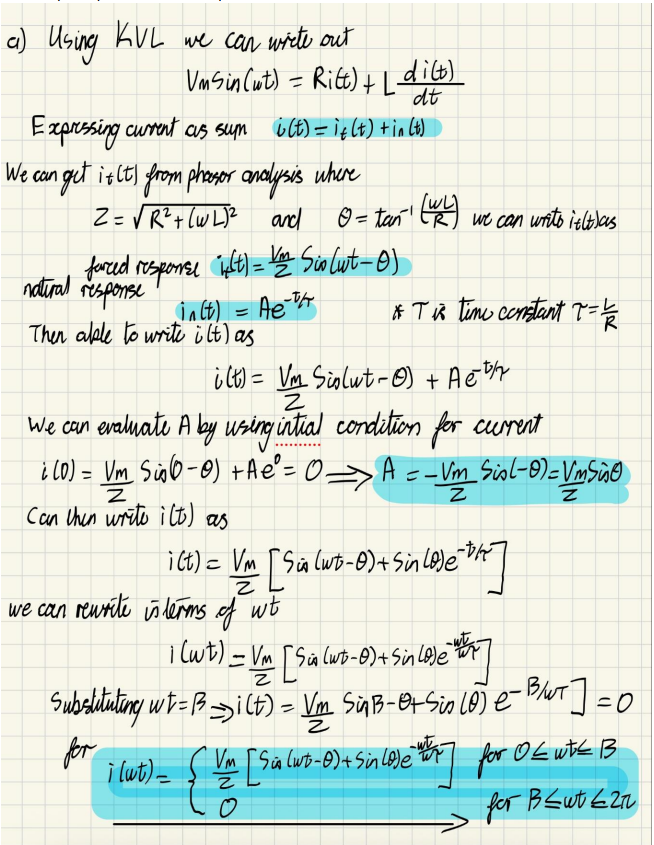 a) Using KVL we can write out
Vm Sin(ωt) = Ri(t) + L di(t)/dt
Expressing current as sum i(t) = i_t(t) + i_n(t)
We can get i_t(t) from phasor analysis where
Z = √R² + (ωL)² and θ = tan⁻¹ (ωL/R) we can write i_t(t) as
forced response i_t(t) = Vm/Z Sin(ωt - θ)
natural response i_n(t) = Ae^-t/τ * τ is time constant τ = L/R
Then able to write i(t) as
i(t) = Vm/Z Sin(ωt - θ) + Ae^-t/τ
We can evaluate A by using intial condition for current
i(0) = Vm/Z Sin(0 - θ) + Ae⁰ = 0 ⟹ A = -Vm/Z Sin(-θ) = Vm/Z Sinθ
Can then write i(t) as
i(t) = Vm/Z [Sin(ωt - θ) + Sin(θ)e^-t/τ]
we can rewrite in terms of ωt
i(ωt) = Vm/Z [Sin(ωt - θ) + Sin(θ)e^-ωt/ωτ]
Substituting ωt = B ⇒ i(t) = Vm/Z SinB - θ + Sin(θ) e^-B/ωτ] = 0
for
i(ωt) = { Vm/Z [Sin(ωt - θ) + Sin(θ)e^-ωt/ωτ] for 0 ≤ ωt ≤ B
0 for B ≤ ωt ≤ 2π